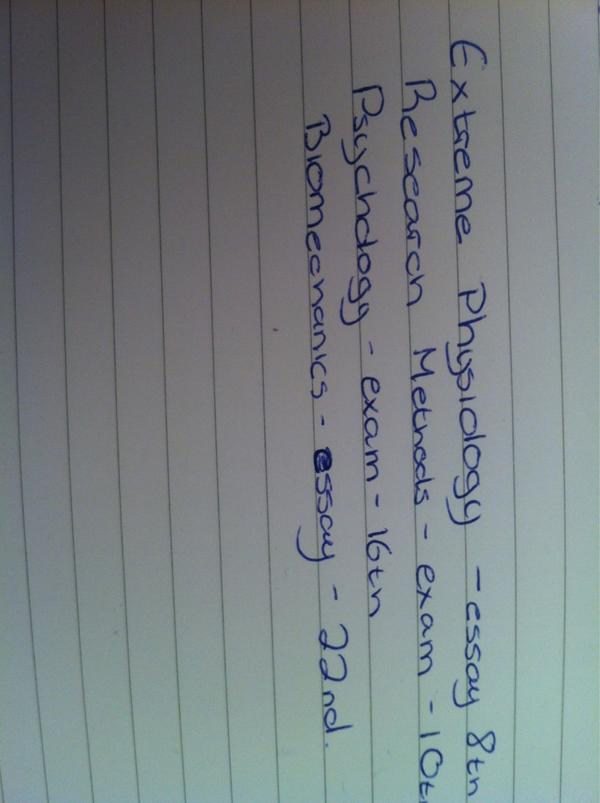 Extreme Physiology - essay 8th
Research Methods - exam - 10th
Psychology - exam - 16th
Biomechanics - essay - 22nd.